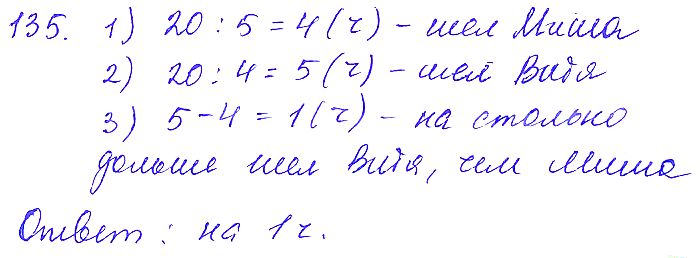 135. 1) 20 : 5 = 4 (ч) - шел Миша
2) 20 : 4 = 5 (ч) - шел Витя
3) 5 - 4 = 1 (ч) - на столько
дольше шел Витя, чем Миша
Ответ : на 1 ч.